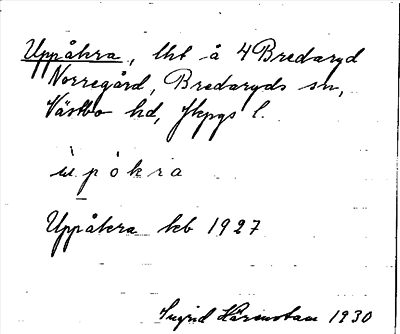 Uppåkra, lht å 4 Bredaryd
Norregård, Bredaryds sn,
Västbo hd, Jkpgs l.
ù pòkra
Uppåkra kb 1927
Ingrid 1930